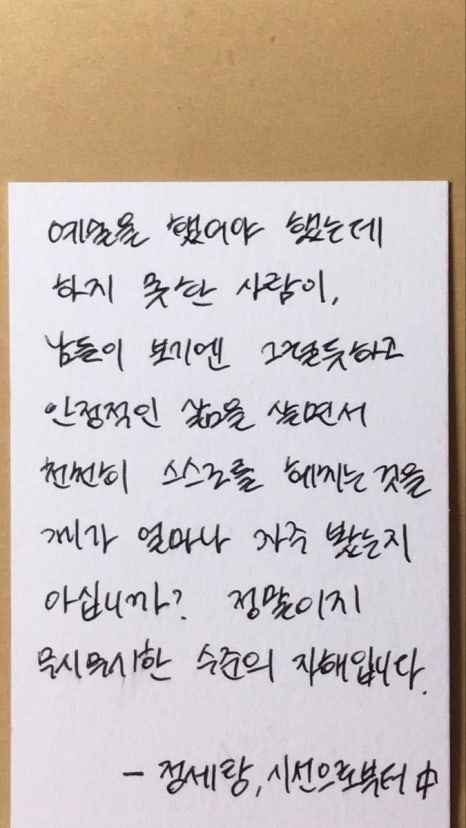 예술을 했어야 했는데
하지 못한 사람이,
남들이 보기엔 그럴듯하고
안정적인 삶을 살면서
천천히 스스로를 해치는 것을
제가 얼마나 자주 봤는지
아십니까? 정말이지
무시무시한 수준의 자해입니다.
- 정세랑, 시선으로부터 中